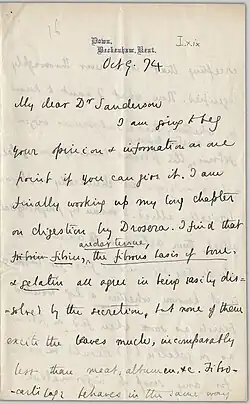 16
Down,
Beckenham, Kent.
I_x ix
Oct 9. 74
My dear Dr Sanderson
I am going to beg
your opinion & information as one
point if you can give it. I am
finally working up my long chapter
on digestion by Drosera. I find that
areolar tissue,
fibrin fibrin, the fibrous basis of bone
& gelatin all agree in being easily dis-
-solved by the secretion, but none of them
excite the leaves much, incomparably
less than meat, albumen &c. Fibro-
-cartilage behaves in the same way